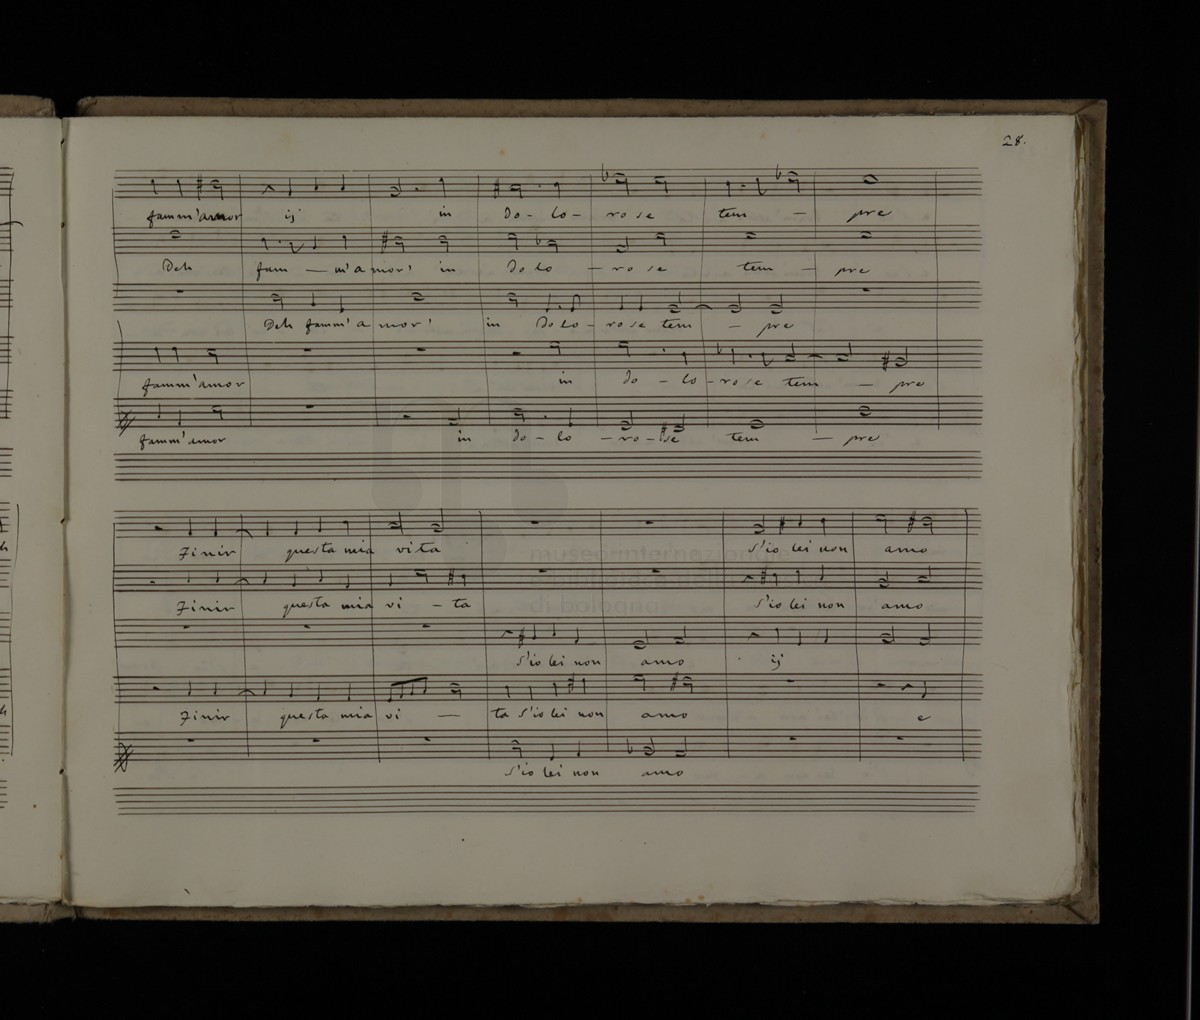 28.
famm'amor ij in do - lo - rose tem - pre
Deh fam - m'amor' in dolo - rose tem - pre
Deh famm'amor' in dolo - rose tem - pre
famm'amor in do - lo - rose tem - pre
famm'amor in do - lo - ro - se tem - pre
Finir questa mia vita s'io lei non amo
Finir questa mia vi - ta s'io lei non amo
s'io lei non amo ij
Finir questa mia vi - ta s'io lei non amo e
s'io lei non amo
museo internazionale
e biblioteca della musica
di bologna